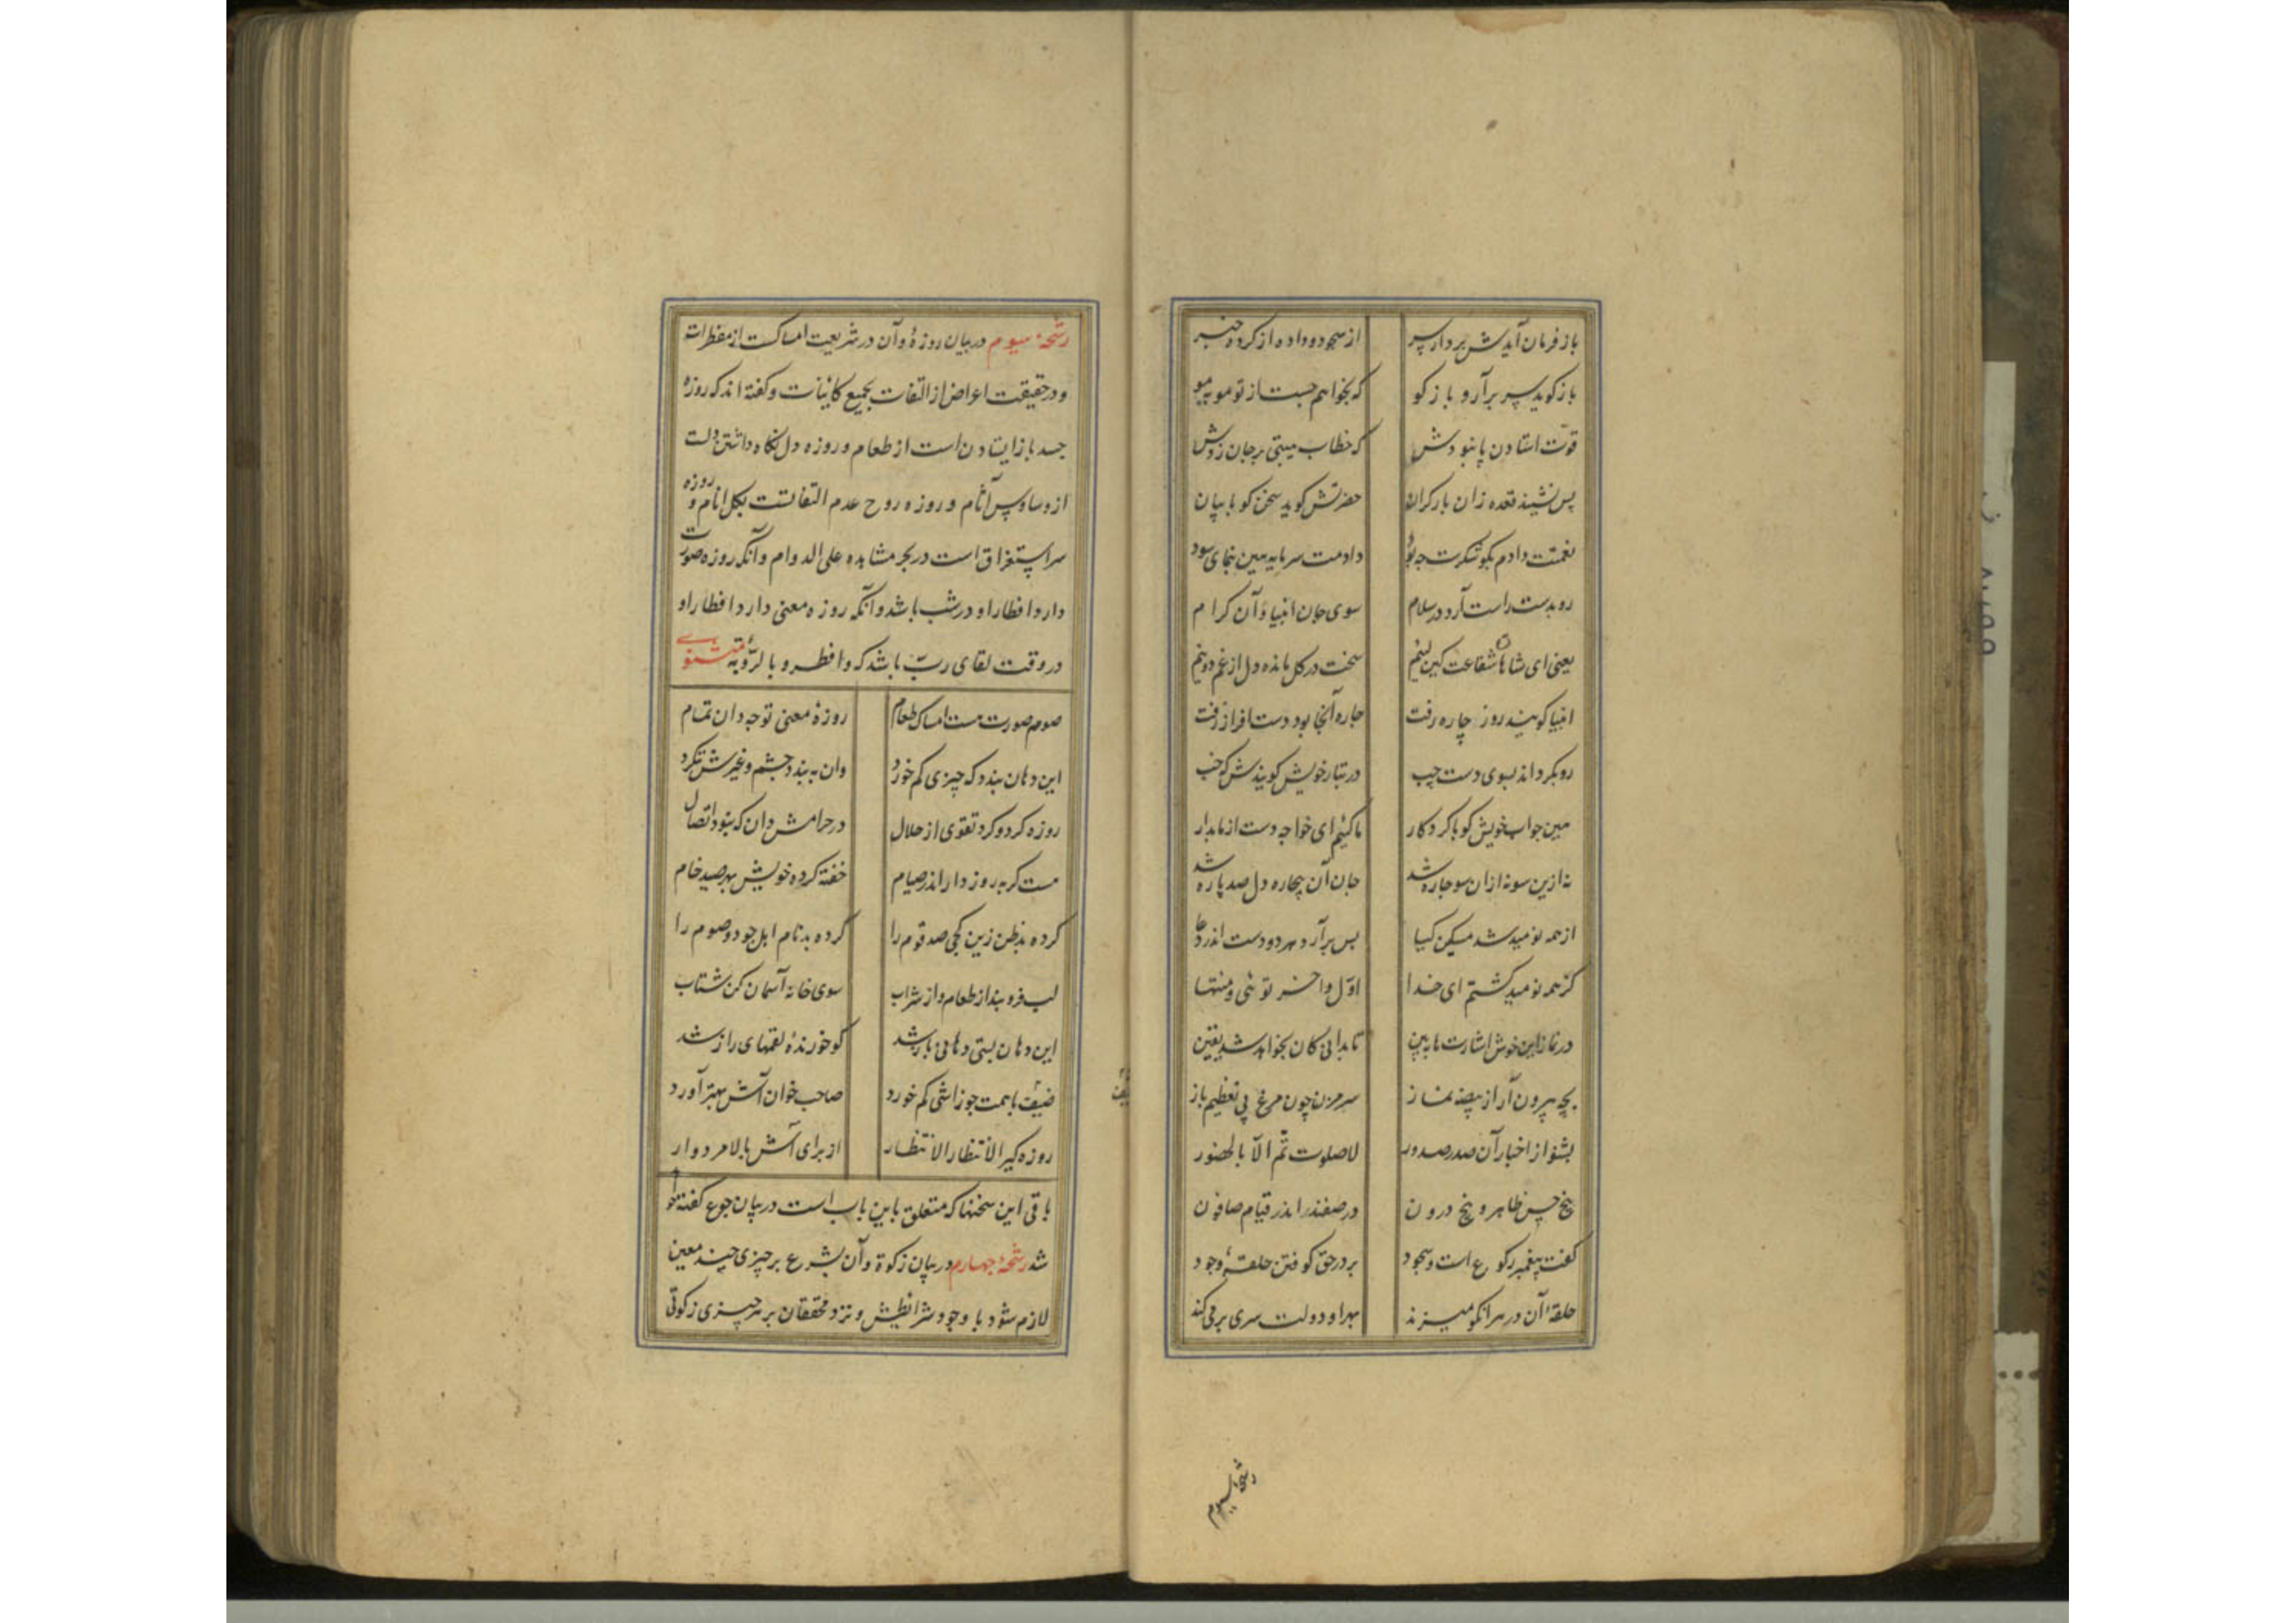 باز فرمان آیدش بردار سر از سجود و داده از کرده خبر
باز کوید سر برآر و باز کو که بخواهم جست از تو مو بمو
قوت استادن پا نبودش که خطاب هیبتی بر جان زدش
پس نشیند قعده زان بار کران حضرتش کوید سخن کو با بیان
نعمتت دادم بکو شکرت چه بود دادمت سرمایه هین بنمای سود
رو بدست راست آرد در سلام سوی جان انبیا و آن کرام
یعنی ای شاهان شفاعت کین لئیم سخت در کل مانده دل از غم دو نیم
انبیا کویند روز چاره رفت چاره آنجا بود دست افزار رفت
رو بکرداند بسوی دست چپ در تبار خویش کویندش که خب
هین جواب خویش کو با کردکار ما کئیم ای خواجه دست از ما بدار
نه ازین سو نه ازان سو چاره شد جان آن بیچاره دل صد پاره شد
از همه نومید شد مسکین کیا پس برآرد هر دو دست اندر دعا
کز همه نومید کشتم ای خدا اول و آخر توئی و منتها
در نماز این خوش اشارت ها ببین تا بدانی کان بخواهد شد یقین
بچه بیرون آر از بیضه نماز سر مزن چون مرغ پی تعظیم باز
بشنو از اخبار آن صدر صدور لا صلوت تم الا بالحضور
پنج حس ظاهر و پنج درون در صفند اندر قیام صافون
کفت پیغمبر رکوع است و سجود بر در حق کوفتن حلقهٔ وجود
حلقهٔ آن در هر انکو میزند بهر او دولت سری بر می کند
رشحهٔ سیوم
رشحهٔ سیوم در بیان روزه و آن در شریعت امساکست از مفطرات
و در حقیقت اعراض از التفات بجمیع کاینات و کفته اند که روزه
جسد باز ایستادن است از طعام و روزه دل نکاه داشتن دلت
از وساوس آثام و روزه روح عدم التفاتست بکل انام و روزه
سر استغراق است در بحر مشاهده علی الدوام و آنکه روزه صورت
دارد افطار او در شب باشد و آنکه روزه معنی دارد افطار او
در وقت لقای رب باشد که و افطروا بالرؤیه مثنوی
صوم صورت هست امساک طعام روزهٔ معنی توجه دان تمام
این دهان بندد که چیزی کم خورد وان به بندد چشم و غیرش ننکرد
روزه کرد و کرد تقوی از حلال در حرامش دان که نبود اتصال
هست کربه روزه دار اندر صیام خفته کرده خویش بهر صید خام
کرده بد ظن زین کجی صد قوم را کرده بد نام اهل جود و صوم را
لب فرو بند از طعام و از شراب سوی خانه آسمان کن شتاب
این دهان بستی دهانی باز شد کو خورندهٔ لقمهای راز شد
ضیف با همت چوز آشی کم خورد صاحب خوان آش بهتر آورد
روزه کیر الانتظار الانتظار از برای آش بالا مردوار
باقی این سخنها که متعلق باین باب است در بیان جوع کفته خواهد
شد رشحهٔ چهارم در بیان زکوة و آن بشرع بر چیزی چند معین
لازم شود با وجود شرائطش و نزد محققان بر هر چیزی زکوتی